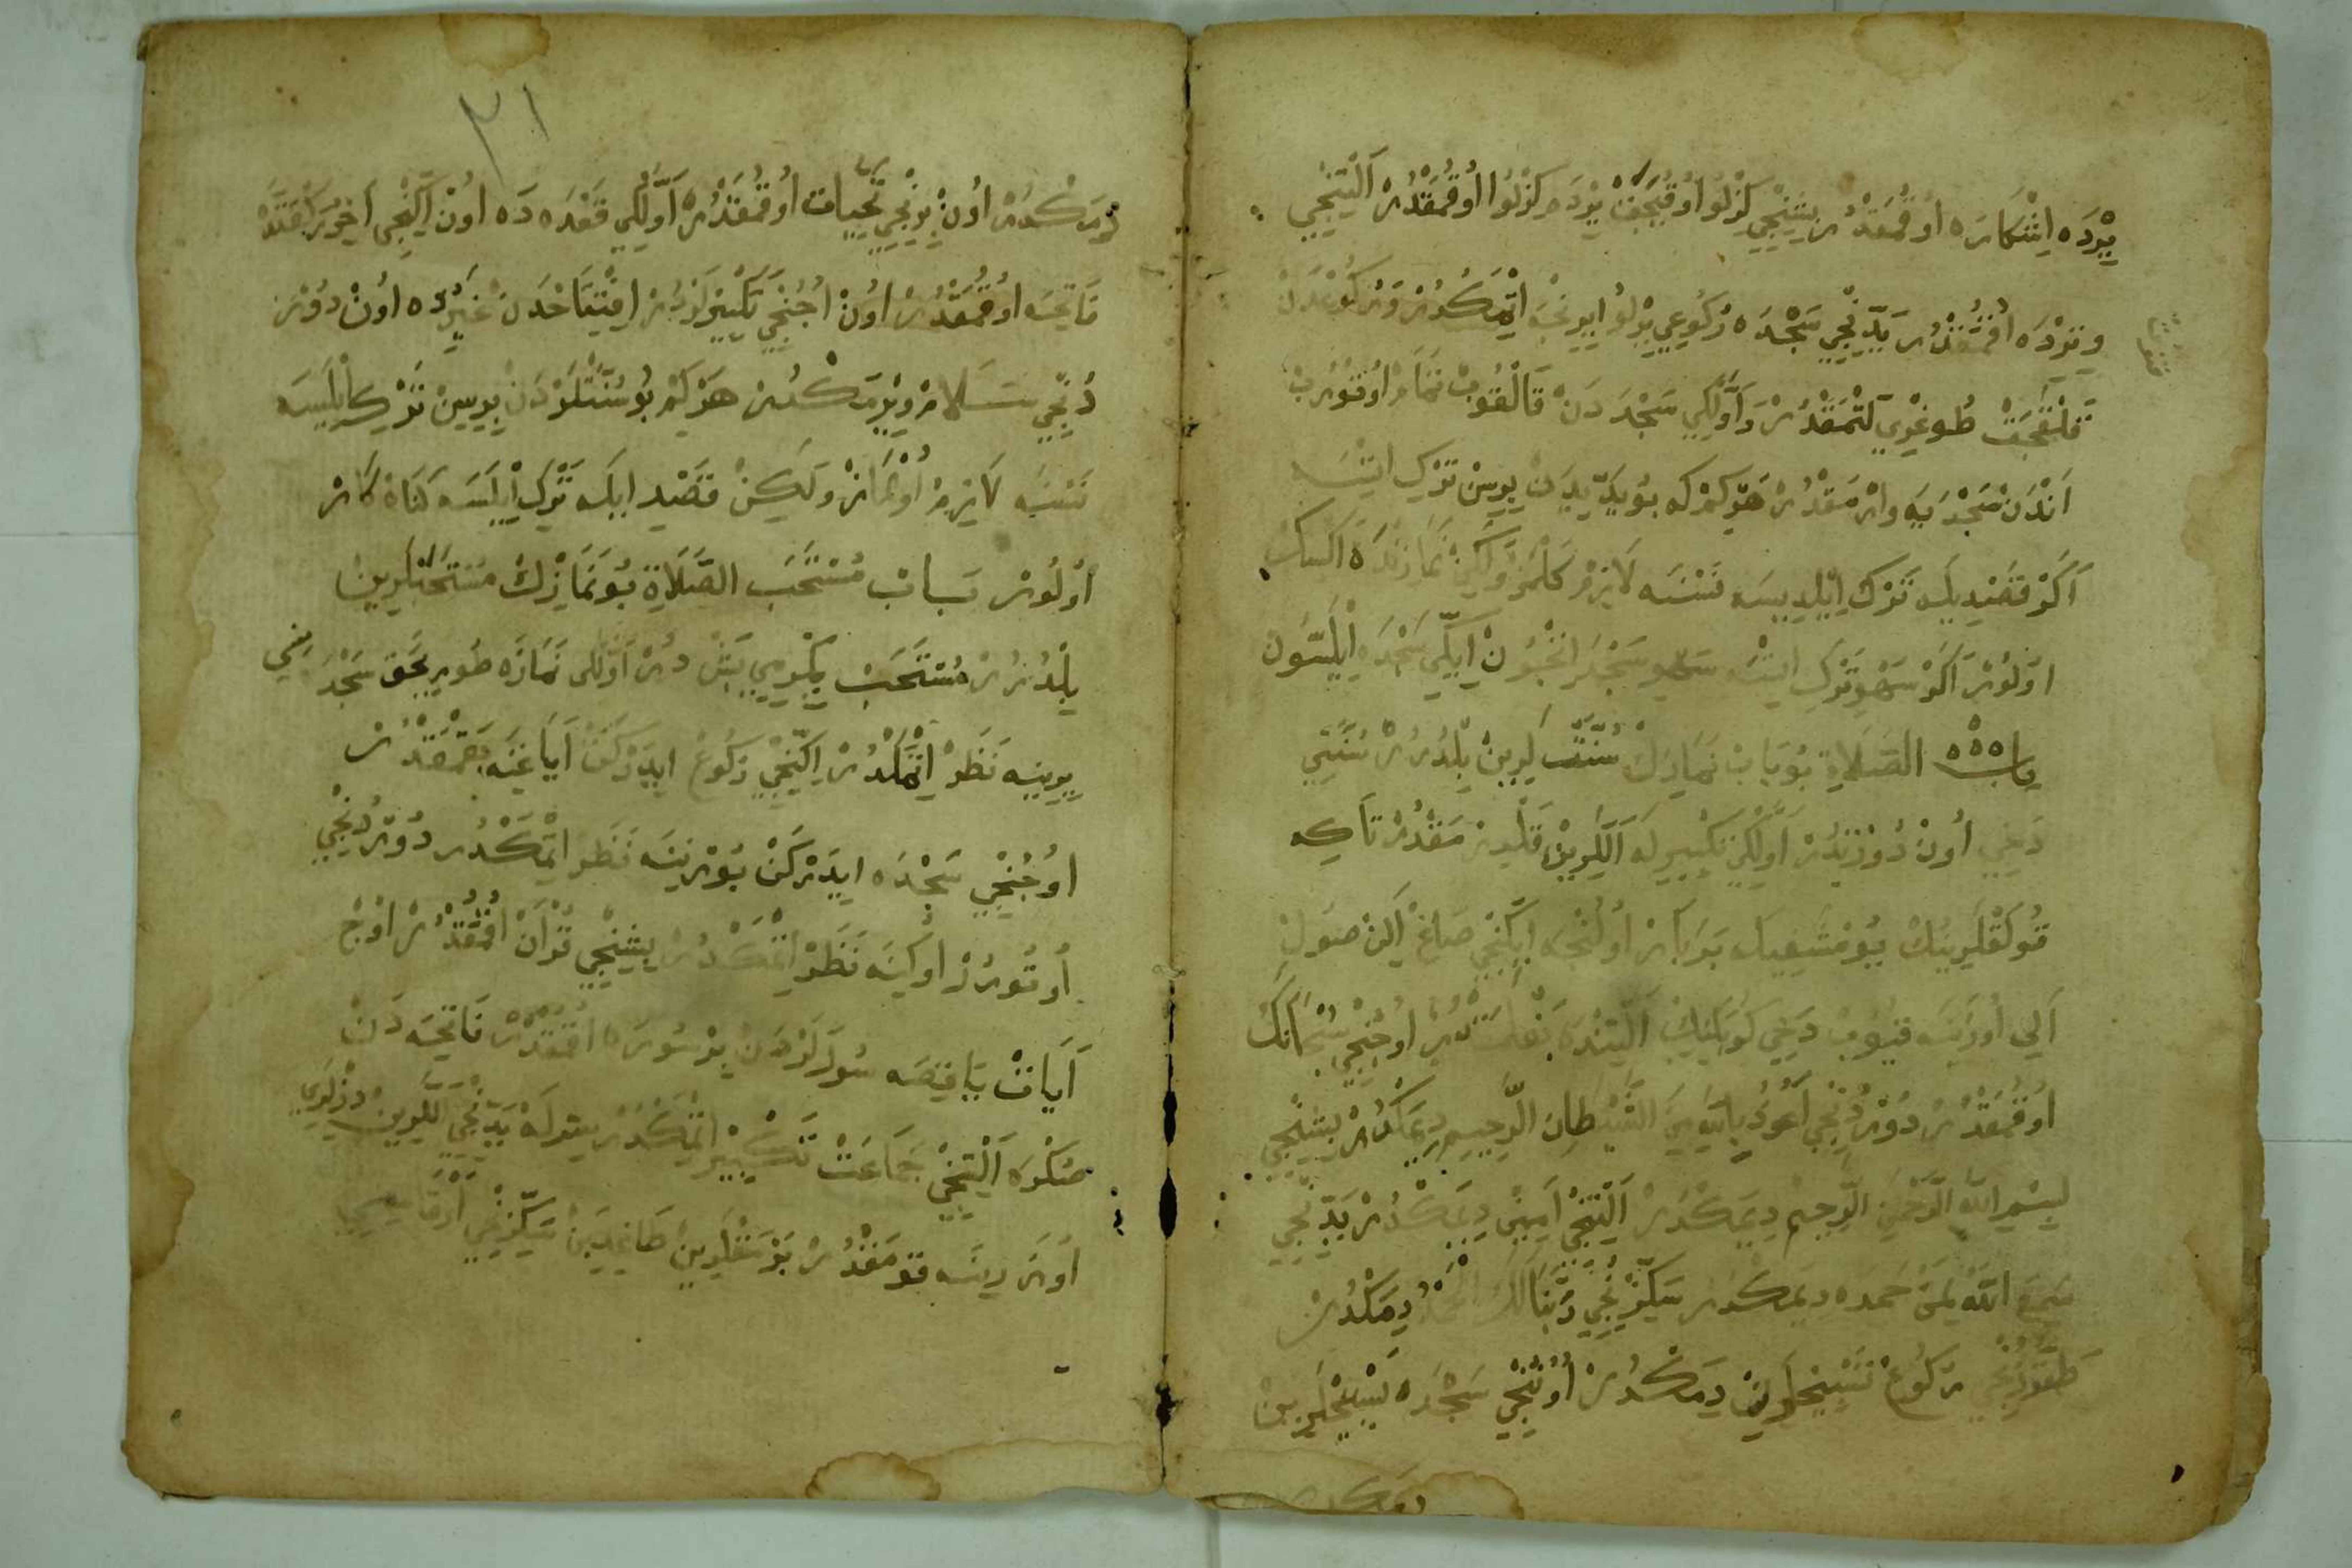 يِرْدَه اِشْكَارَه اوُقُمَقْدُرْ بِشِنْجِي كِزْلُو اوُقُيَجَقْ يِرْدَه كِزْلُو اوُقُمَقْدُرْ اَلْتِنْجِي
وِتِرْدَه اُقُمَقْدُرْ يَدِّنْجِي سَجْدَه رُكُوعِي بِرْلُو اِيرِنْجَه اِتْمَكْدُرْ وَرُكُوعْدَنْ
قَلْقَجَقْ طُوغْرِي لَنْمَقْدُرْ وَاَوَّلْكِي سَجْدَ دَنْ قَالْقُوبْ تَمَامْ اوُتُورُبْ
اَنْدَنْ سَجْدَيَه وَارْمَقْدُرْ هَرْكِمْ كه بُو يَدِّيدَنْ بِرِسِنْ تَرْكِ اِيتْسَه
اَكَرْ قَصْدِيلَه تَرْك اِيْلَدِيسَه نَسْنَه لَازِمْ كَلْمَزْ وَلَكِنْ نَمَازِنْدَه اَكْسِك
اوُلُورْ اَكَرْ سَهْوِ تَرْكِ اِيتْسَه سَهُو سَجْدَ اِيچُونْ اِيكِّي سَجْدَه اِيْلَسُونْ
بابْ الصَّلَاةِ بُو بَابْ نَمَازِكْ سُنَّتْ لَرِينْ بِلْدُرُرْ سُنَّتِي
دَخِي اوُنْ دُورْتدُرْ اَوَّلْكِي تَكْبِيرلَه اَلْلَرِينْ قَلْدِرْمَقْدُرْ تَا كِه
قُولَقْلَرِينُكْ يُومْشَغِيلَه بَرَابَرْ اوُلُنْجَه اِيكِنْجِي صَاغْ اَلِنْ صُولْ
اَلِي اوُزَرِنَه قُيُوبْ دَخِي كُوبَكِنِكْ اَلْتِنْدَه بَغْلَمَقْدُرْ اوُجُنْجِي سُبْحَانَكَ
اوُقُمَقْدُرْ دُورْدُنْجِي اَعُوذُ بِاللّهِ مِنَ الشَّيْطَانِ الرَّجِيمِ دِيمَكْدُرْ بِشِنْجِي
بِسْمِ اللّهِ الرَّحْمَنِ الرَّحِيمْ دِيمَكْدُرْ اَلْتِنْجِي اَمِينْ دِيمَكْدُرْ يَدِّنْجِي
سَمِعَ اللّهُ لِمَنْ حَمِدَه دِيمَكْدُرْ سَكِّزِنْجِي رَبَّنَا لَكَ الْحَمْدُ دِيمَكْدُرْ
طَقُزُنْجِي رُكُوعْ تَسْبِيحْلَرِنْ دِيمَكْدُرْ اوُنُنْجِي سَجْدَه تَسْبِيحْلَرِينْ
دِيمَكْدُرْ
٢١
دِيمَكْدُرْ اوُنْ بِرِنْجِي تَحِيَّاتْ اوُقُمَقْدُرْ اَوَّلْكِي قَعْدَه دَه اوُنْ اِيكِنْجِي اَخِرْ رَكْعَتدَه
فَاتِحَه اوُقُمَقْدُرْ اوُنْ اُجُنْجِي تَكْبِيرْلَرْدُرْ اِفْتِتَاحْدَنْ غَيْرِدَه اوُنْ دُورْ
دُنْجِي سَلَامْ وِيرْمَكْدُرْ هَرْكِمْ بُو سُنَّتْلَرْدَنْ بِرِسِنْ تَرْكِ اِيْلَسَه
نَسْنَه لَازِمْ اوُلْمَازْ وَلَكِنْ قَصْدِ ايلَه تَرْكِ اِيْلَسَه كُنَاهْ كَارْ
اوُلُورْ بَابْ مُسْتَحَبِ الصَّلَاةِ بُو نَمَازِكْ مُسْتَحَبْلَرِينْ
بِلْدُرُرْ مُسْتَحَبْ يِكِرْمِي بَشْ دُرْ اَوَّلْكِي نَمَازَه طُورِيجَقْ سَجْدَ
يِرِينَه نَظَرْ اِتْمَكْدُرْ اِكِنْجِي رُكُوعْ ايدَرْكَنْ اَيَاغِنَه بَقْمَقْدُرْ
اوُجُنْجِي سَجْدَه اِيدَرْكَنْ بُورْنِنَه نَظَرْ اِتْمَكْدُرْ دُورْدُنْجِي
اوُتُورُرْ اوُكِنَه نَظَرْ اِتْمَكْدُرْ بِشِنْجِي قُرْآنْ اُقُمَقْدُرْ اوُجْ
اَيَاتْ يَا قِيصَه سُورَلَرْدَنْ بِرْ سُورَه اُقُمَقْدُرْ فَاتِحَه دَنْ
صُكْرَه اَلْتِنْجِي جَمَاعَتْ تَكْبِيرْ اِتْمَكْدُرْ يَدِّنْجِي اَللَرِينْ دِزْلَرِي
اوُزَرِينَه قُومَقْدُرْ بَرْمَقْلَرِينْ طَاغِدَرِنْ سَكِّزِنْجِي اَرْقَاسِنِي